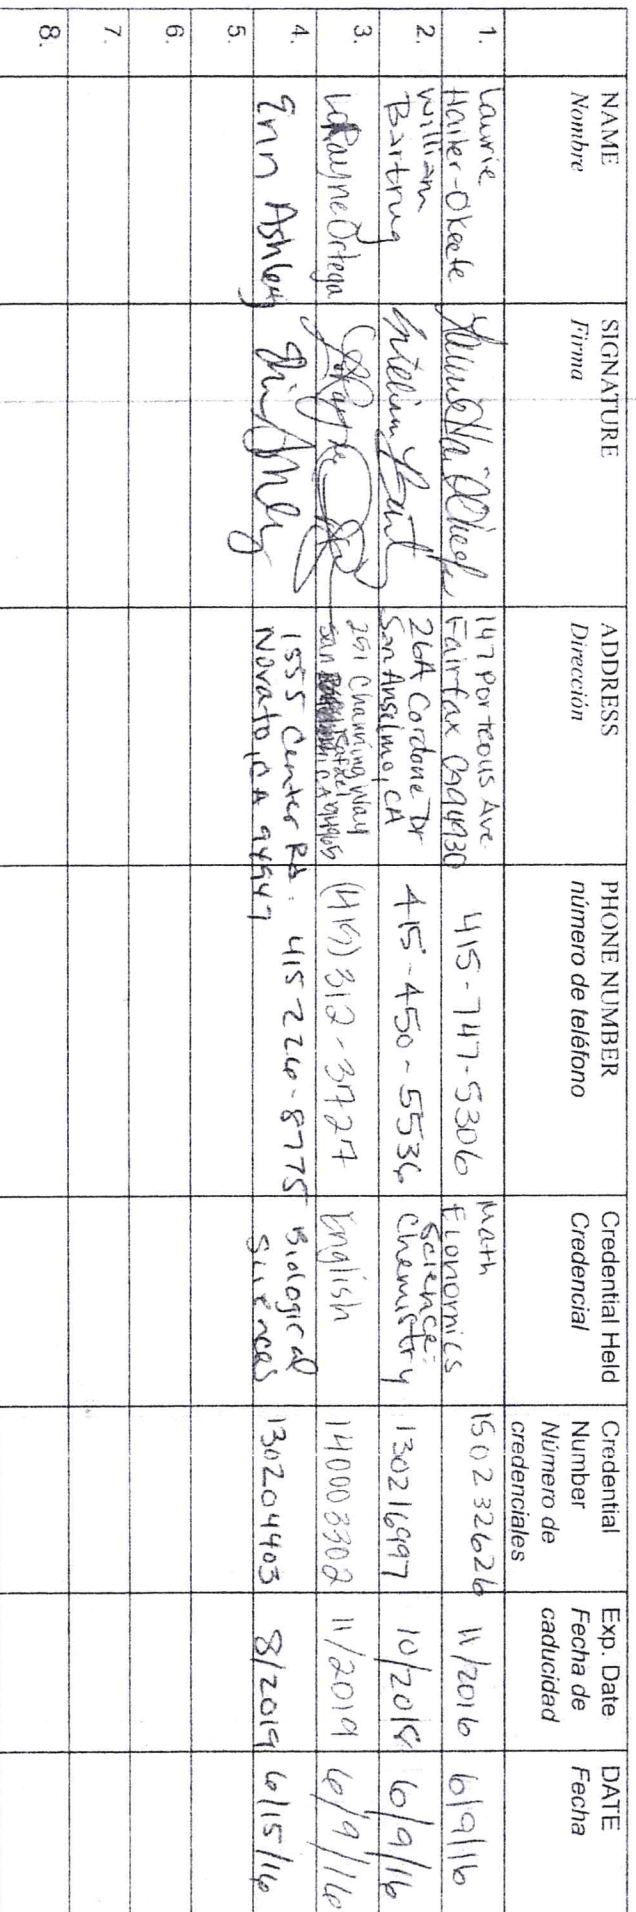 NAME
Nombre
SIGNATURE
Firma
ADDRESS
Dirección
PHONE NUMBER
número de teléfono
Credential Held
Credencial
Credential
Number
Número de
credenciales
Exp. Date
Fecha de
caducidad
DATE
Fecha
1.
Laurie
Hailer-Okeefe
147 Porteous Ave
Fairfax CA 94930
415-747-5306
Math
Economics
150232626
11/2016
6/9/16
2.
William
Bartrug
26A Cordone Dr
San Anselmo, CA
415-450-5536
Science:
Chemistry
130216997
10/2018
6/9/16
3.
LaRayne Ortega
251 Channing Way
San Rafael, CA 94903
(415) 312-3727
English
140003302
11/2019
6/9/16
4.
Erin Ashley
1555 Center Rd.
Novato, CA 94947
415 226-8775
Biological
Sciences
130204403
8/2019
6/15/16
5.
6.
7.
8.